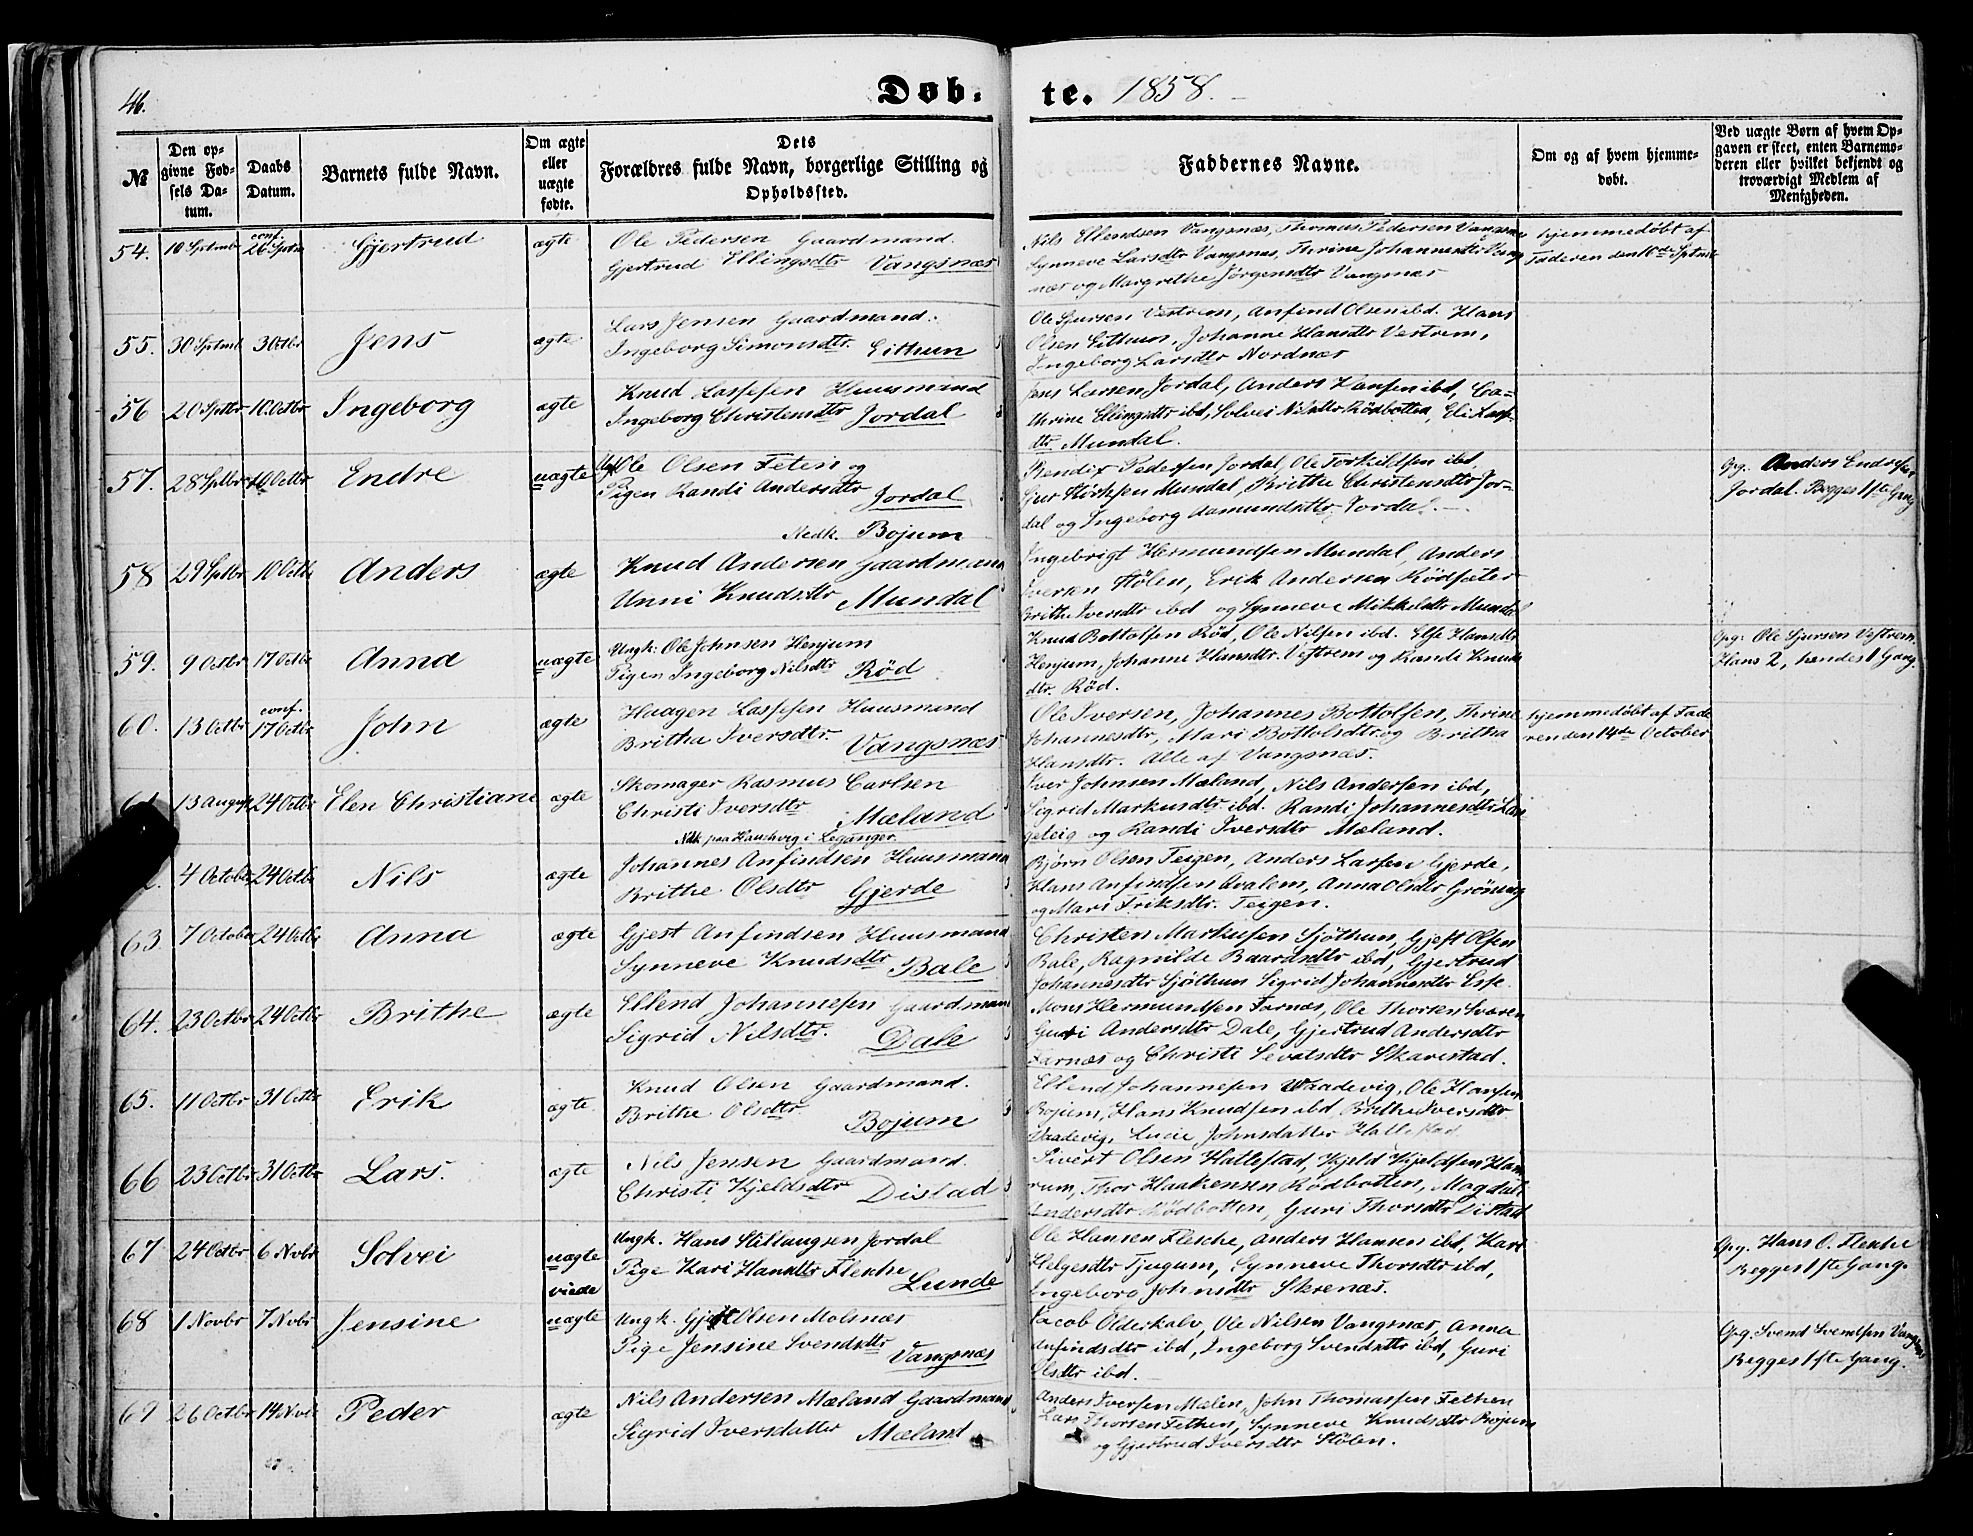 46.
Døb-
te. 1858.
№
Den op-
givne Fød-
sels Da-
tum.
Daabs
Datum.
Barnets fulde Navn.
Om ægte
eller
uægte
fødte.
Dets
Forældres fulde Navn, borgerlige Stilling og
Opholdssted.
Faddernes Navne.
Om og af hvem hjemme-
døbt.
Ved uægte Børn af hvem Op-
gaven er skeet, enten Barnemo-
deren eller hvilket bekjendt og
troværdigt Medlem af
Menigheden.
54. 10 Sptmb conf. 26 Sptm Gjertrud ægte
Ole Pedersen Gaardmand.
Gjertrud Ellingsdtr Vangsnæs
Nils Ellendsen Vangsnæs, Thomas Pedersen Vangsnæs
Synneve Larsdtr Vangsnæs, Thrine Johannesdtr Vangs
næs og Margrethe Jörgensdtr Vangsnæs
hjemmedöbt af
Faderen den 10de Sptmb
55. 30 Sptmb 3 Octbr Jens ægte
Lars Jensen Gaardmand.
Ingeborg Simonsdtr. Eithun
Ole Sjursen Vestrem, Anfind Olsen ibd. Hans
Olsen Eithun, Johanne Hansdtr Vestrem,
Ingeborg Larsdtr Nordnæs
56 20 Sptbr 10 Octbr Ingeborg ægte
Knud Lassesen Huusmand
Ingeborg Christensdtr Jordal
Jens Larsen Jordal, Anders Hansen ibd, Ca-
thrine Ellingsdtr ibd, Solvei Nilsdtr Rödbotten, Eli Lasse
dtr Mundal.
57. 28 Sptbr 10 Octbr Endre uægte
Ungk Ole Olsen Feten og
Pigen Randi Andersdtr Jordal
Bendix Pedersen Jordal, Ole Torkildsen ibd,
Sjur Störksen Mundal, Brithe Christensdtr Jor-
dal og Ingeborg Aamundsdtr Jordal.
Opg. Anders Endresen
Jordal. Begges 1ste Gang
Nedk. Bojum
58 29 Sptbr 10 Octbr Anders ægte
Knud Andersen Gaardmand
Unni Knudsdtr Mundal
Ingebrigt Hermundsen Mundal, Anders
Iversen Stölen, Erik Andersen Rödsæter
Brithe Iversdtr ibd og Synneve Mikkelsdtr Mundal
59. 9 Octbr 17 Octbr Anna uægte
Ungk: Ole Johnsen Henjum
Pigen Ingeborg Nilsdtr Röd
Knud Bottolfsen Röd, Ole Nilsen ibd. Else Hansdtr
Henjum, Johanne Hansdtr. Vestrem og Randi Knuds
dtr. Röd.
Opg: Ole Sjursen Vestrem.
Hans 2, hendes 1 Gang.
60. 13 Octbr conf. 17 Octbr John ægte
Haagen Lassesen Huusmand
Britha Iversdtr. Vangsnæs
Ole Iversen, Johannes Bottolfsen, Thrine
Johannesdtr, Mari Bottolfsdtr og Britha
Hansdtr. Alle af Vangsnæs.
hjemmedöbt af Fade
ren den 14de October
13 August 24 Octbr Elen Christiane ægte
Skomager Rasmus Carlsen
Christi Iversdtr Mæland
Iver Johnsen Mæland, Nils Andersen ibd,
Sigrid Markusdtr ibd. Randi Johannesdtr Lan
geteig og Randi Iversdtr Mæland.
Nedk. paa Hauchvig i Leganger.
4 October 24 Octbr Nils ægte
Johannes Anfindsen Huusmand
Brithe Olsdtr Gjerde
Bjørn Olsen Teigen, Anders Larsen Gjerde,
Hans Anfindsen Hvalem, Anna Olsdtr Gröning
og Mari Eriksdtr. Teigen.
63 7 October 24 Octbr Anna ægte
Gjest Anfindsen Huusmand
Synneve Knudsdtr Bale
Christen Markusen Sjöthun, Gjest Olsen
Bale, Ragnilde Baardsdtr ibd, Gjertrud
Johannesdtr Sjöthun Sigrid Johannesdtr Esse
64. 23 Octbr 24 Octbr Brithe ægte
Ellend Johannesen Gaardmand
Sigrid Nilsdtr. Dale
Mons Hermundsen Farnæs, Ole Thorsen Sværen
Guri Andersdtr Dale, Gjertrud Andersdtr
Farnæs og Christi Sevatsdtr Skarestad.
65. 11 Octbr 31 Octbr Erik ægte
Knud Olsen Gaardmand.
Brithe Olsdtr Bojum
Ellend Johannesen Vaadevig, Ole Hansen
Bojum, Hans Knudsen ibd Brithe Iversdtr
Vaadevig, Lucie Johnsdatter Hallestad
66 23 Octbr 31 Octbr Lars. ægte
Nils Jensen Gaardmand.
Christi Kjeldsdtr Distad
Sivert Olsen Hallestad, Kjeld Kjeldsen Ham
rum, Thor Haakensen Rödbotten, Magdali
Andersdtr Rödbotten, Guri Thorsdtr Distad
67 24 Octbr 6 Novbr Solvei uægte viede
Ungk. Hans Stillaugsen Jordal
Pige Kari Hansdtr Flekke Lunde
Ole Hansen Flesche, Anders Hansen ibd, Kari
Helgesdtr Tjugum, Synneve Thorsdtr ibd,
Ingeborg Johnsdtr Skrenæs.
Opg. Hans O. Flekke
Begges 1ste Gang.
68 1 Novbr 7 Novbr Jensine uægte
Ungk. Gjest Olsen Molsnæs
Pige Jensine Svendsdtr Vangsnæs
Jacob Olderkalv, Ole Nilsen Vangsnæs, Anna
Anfindsdtr ibd, Ingeborg Svendsdtr ibd, Guri
Olsdtr ibd.
Opg. Svend Svendsen Vangsnæs
Begges 1ste Gang.
69 26 Octbr 14 Novb Peder ægte
Nils Andersen Mæland Gaardmand
Sigrid Iversdatter Mæland
Anders Iversen Mælen, John Thomassen Fethen
Lars Thorsen Fethen, Synneve Knudsdtr Bojum
og Gjertrud Iversdtr Stölen.